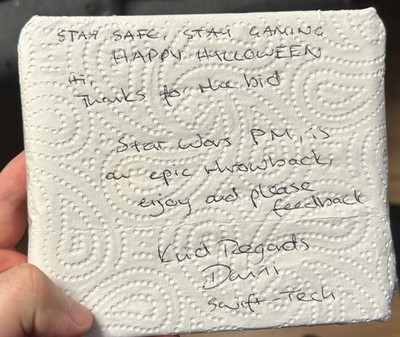 STAY SAFE, STAY GAMING
HAPPY HALLOWEEN
Hi,
Thanks for the bid
Star Wars PM, is
an epic throwback,
enjoy and please
feedback
Kind Regards
Swift-Tech